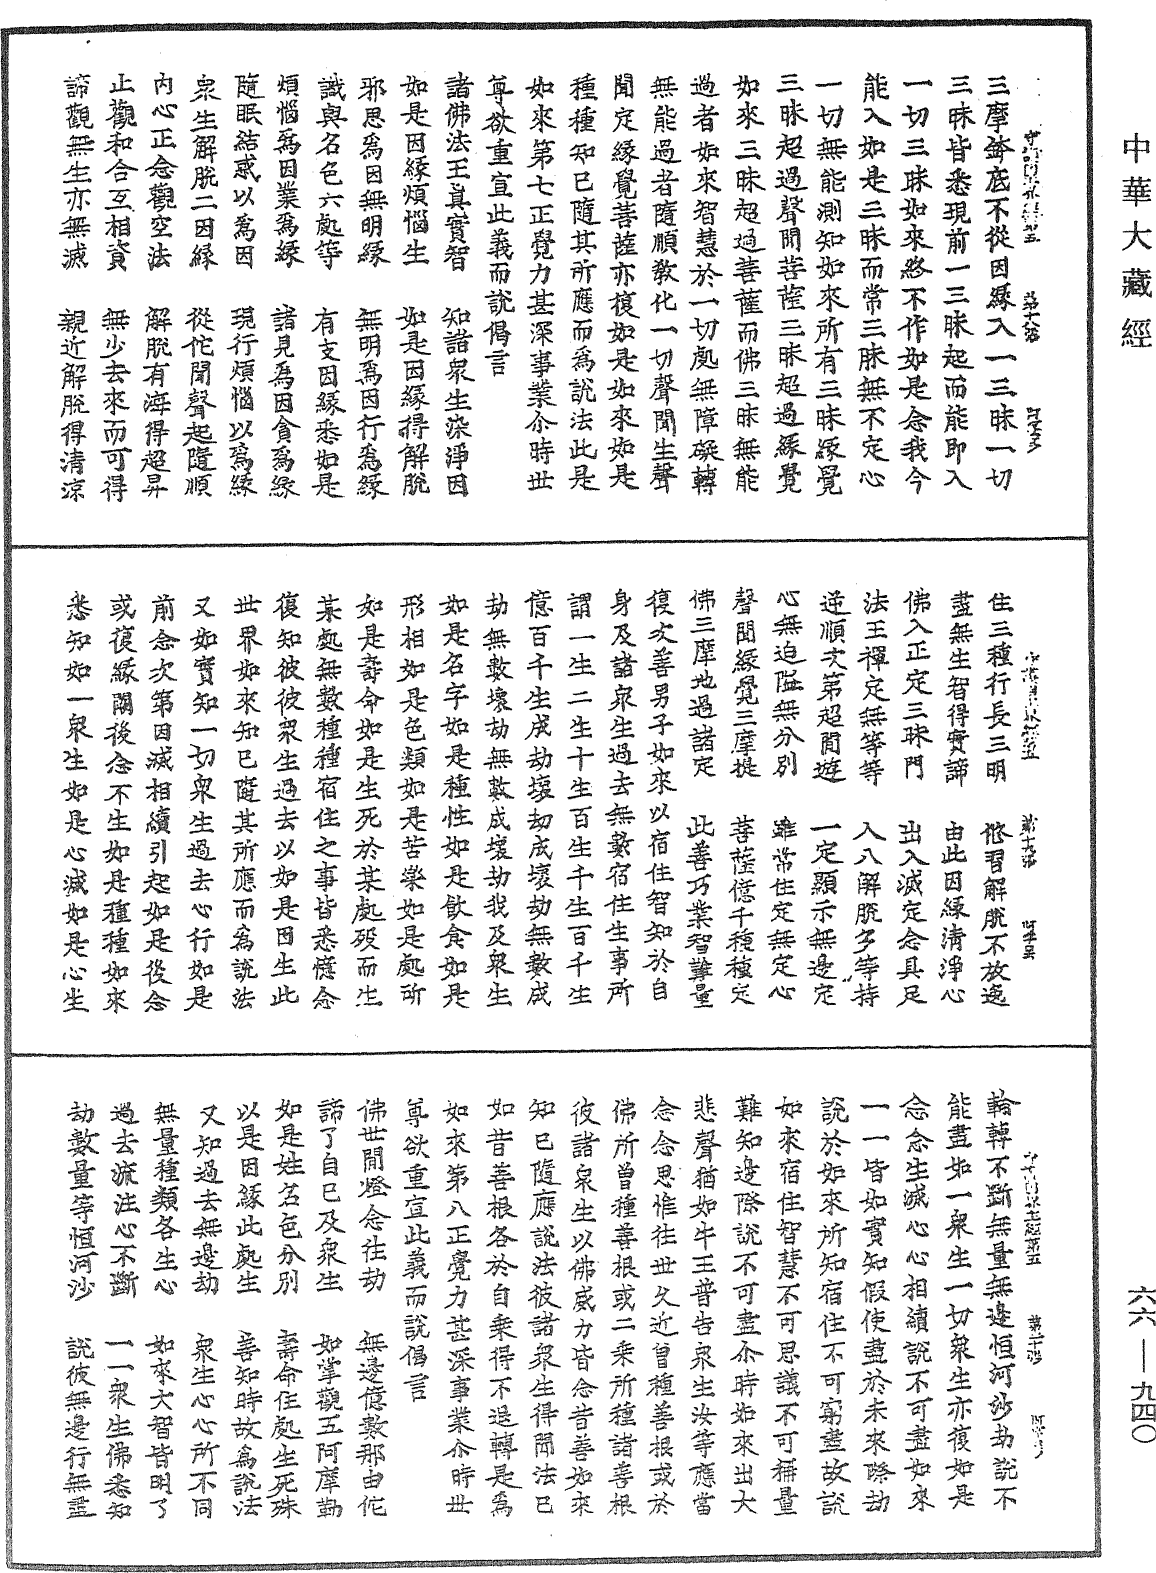 中華大藏經
三摩鉢底不從因緣入一三昧一切
三昧皆悉現前一三昧起而能即入
一切三昧如來終不作如是念我今
能入如是三昧而常三昧無不定心
一切無能測知如來所有三昧緣覺
三昧超過聲聞菩薩三昧超過緣覺
如來三昧超過菩薩而佛三昧無能
過者如來智慧於一切處無障礙轉
無能過者隨順教化一切聲聞生聲
聞定緣覺菩薩亦復如是如來如是
種種知已隨其所應而為說法此是
如來第七正覺力甚深事業尒時世
尊欲重宣此義而說偈言
諸佛法王真實智 知諸衆生染淨因
如是因緣煩惱生 如是因緣得解脫
邪思為因無明緣 無明為因行為緣
識與名色六處等 有支因緣悉如是
煩惱為因業為緣 諸見為因貪為緣
隨眠結惑以為因 現行煩惱以為緣
衆生解脫二因緣 從佗聞聲起隨順
內心正念觀空法 解脫有海得超昇
止觀和合互相資 無少去來而可得
諦觀無生亦無滅 親近解脫得清涼
住三種行長三明 修習解脫不放逸
盡無生智得實諦 由此因緣清淨心
佛入正定三昧門 出入滅定念具足
法王禪定無等等 入八解脫多等持
逆順次第超間遊 一定顯示無邊定
心無迫隘無分別 雖常住定無定心
聲聞緣覺三摩提 菩薩億千種種定
佛三摩地過諸定 此善巧業智難量
復次善男子如來以宿住智知於自
身及諸衆生過去無數宿住生事所
謂一生二生十生百生千生百千生
億百千生成劫壞劫成壞劫無數成
劫無數壞劫無數成壞劫我及衆生
如是名字如是種性如是飲食如是
形相如是色類如是苦樂如是處所
如是壽命如是生死於某處歿而生
某處無數種種宿住之事皆悉憶念
復知彼彼衆生過去以如是因生此
世界如來知已隨其所應而為說法
又如實知一切衆生過去心行如是
前念次第因滅相續引起如是後念
或復緣闕後念不生如是種種如來
悉知如一衆生如是心滅如是心生
輪轉不斷無量無邊恒河沙劫說不
能盡如一衆生一切衆生亦復如是
念念生滅心心相續說不可盡如來
一一皆如實知假使盡於未來際劫
說於如來所知宿住不可窮盡故說
如來宿住智慧不可思議不可稱量
難知邊際說不可盡尒時如來出大
悲聲猶如牛王普告衆生汝等應當
念念思惟往世久近曾種善根或於
佛所曾種善根或二乘所種諸善根
彼諸衆生以佛威力皆念昔善如來
知已隨應說法彼諸衆生得聞法已
如昔善根各於自乘得不退轉是為
如來第八正覺力甚深事業尒時世
尊欲重宣此義而說偈言
佛世間燈念往劫 無邊億數那由佗
諦了自已及衆生 如掌觀五阿摩勒
如是姓名色分別 壽命住處生死殊
以是因緣此處生 善知時故為說法
又知過去無邊劫 衆生心心所不同
無量種類各生心 如來大智皆明了
過去流注心不斷 一一衆生佛悉知
劫數量等恒河沙 說彼無邊行無盡
六六—九四〇